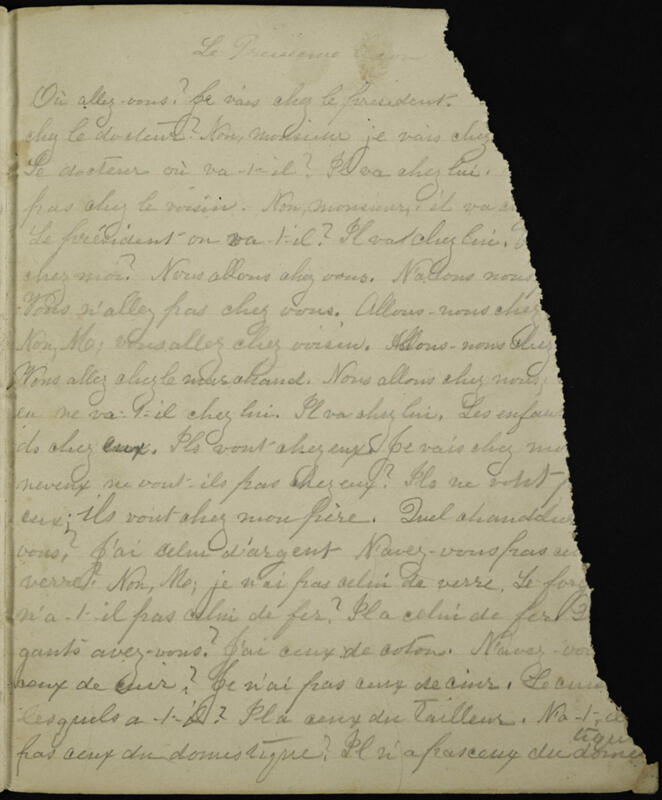 Le Treisieme
Où allez-vous? Je vais chez le président.
chez le docteur? Non, monsieur je vais chez
Le docteur où va-t-il? Il va chez lui.
pas chez le voisin. Non, monsieur, il va
Le président ou va-t-il? Il va chez lui.
chez moi? Nous allons chez vous. N'allons nous
Vous n'allez pas chez vous. Allons-nous chez
Non, Me; vous allez chez voisin. Allons-nous chez
Vous allez chez le marchand. Nous allons chez nous,
eu ne va-t-il chez lui. Il va chez lui. Les enfan
ils chez eux. Ils vont chez eux. Je vais chez mo
neveux ne vont-ils pas chez eux? Ils ne vont p
eux; ils vont chez mon père. Quel chanddu
vous? J'ai celui d'argent N'avez-vous pas ce
verre? Non, Me; je n'ai pas celui de verre. Le forg
n'a-t-il pas celui de fer? Il a celui de fer Q
gants avez-vous? J'ai ceux de coton. N'avez-vou
ceux de cuir? Je n'ai pas ceux de cuir. Le cuis
lesquels a-t-il? Il a ceux du tailleur. N'a-t-il
pas ceux du domestique? Il n'a pas ceux du domestique